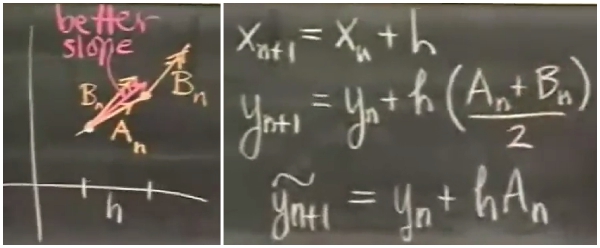 better
slope
Bₙ
Bₙ
Aₙ
h
xₙ₊₁ = xₙ + h
yₙ₊₁ = yₙ + h (Aₙ + Bₙ / 2)
ỹₙ₊₁ = yₙ + hAₙ